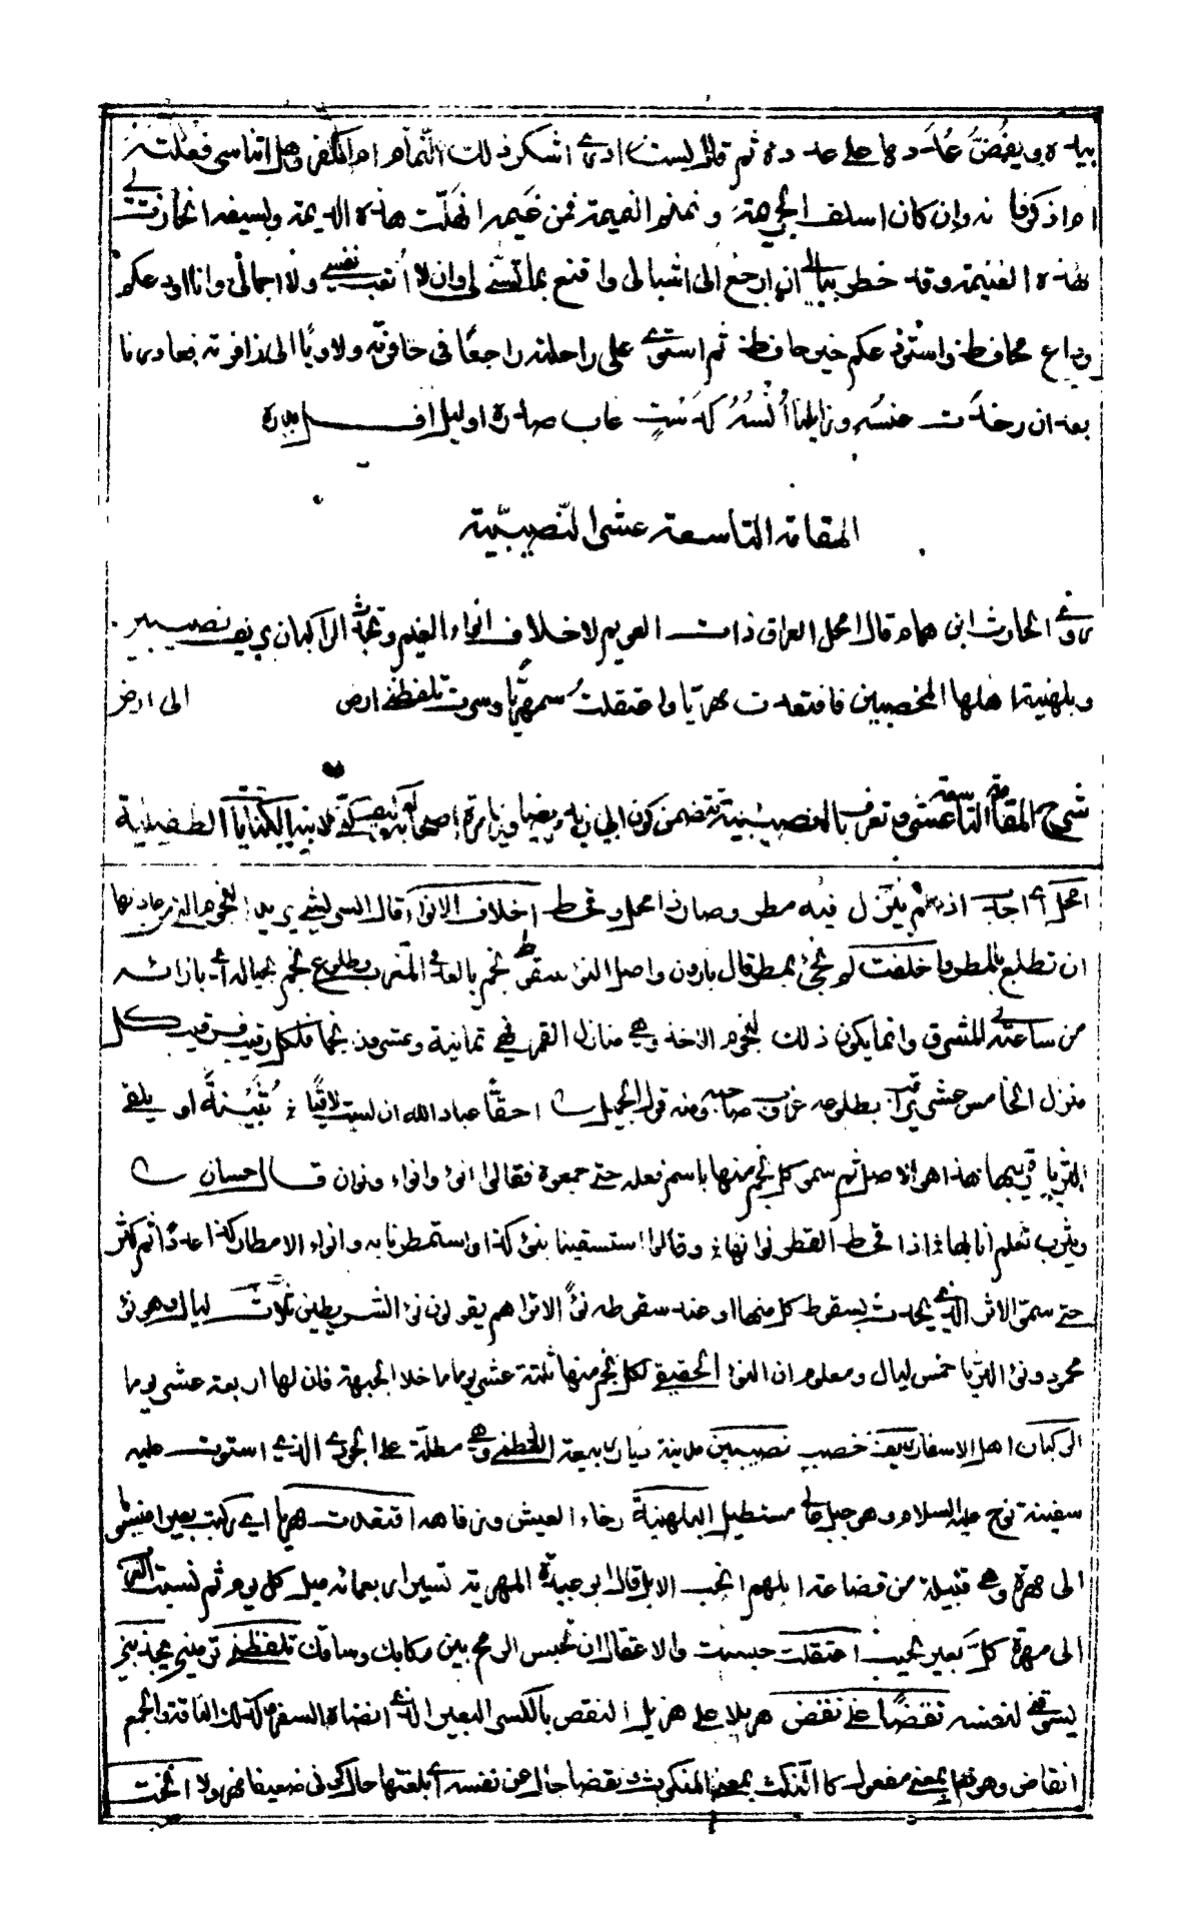 بيده ويفض عدوها على عدده ثم قال لست ادري اشكر ذلك النمام ام اكفر وهل اتناسى فعلته
ام اذكر فانه وان كان اسلف الجريمة ونمنم النميمة فمن غيمه انهلت هذه الديمة وبسيفه انحازت لي
هذه الغنيمة وقد خطر ببالي ان ارجع الى اشبالي واقنع بما تسنى لي وان لا اتعب نفسي ولا اجمالي وانا اودعكم
وداع محافظ واستودعكم خير حافظ ثم استوى على راحلته راجعا في حافرته ولاويا الى زافرته فغادرنا
بعد ان وخدت عنسه وزايلنا انسه كدست غاب صدره او ليل افل بدره
المقامة التاسعة عشر النصيبية
روى الحارث ابن همام قال امحل العراق ذات العويم لاخلاف انواء الغيم وتحدث الركبان بريف نصيبين
وبلهنية اهلها المخصبين فاقتعدت مهريا واعتقلت سمهريا وسرت تلفظني ارض الى ارض
شرح المقامة التاسعة عشر وتعرف بالنصيبية تتضمن كون ابي زيد مريضا وزيارة اصحابه الكنايا الطفيلية
امحل اي اجدب اذ لم ينزل فيه مطر وصار ذا محل وقحط اخلاف الانواء قال الشريشي يريد النجوم التي عادتها
ان تطلع بالمطر واخلفت لم تجئ بمطر قال بارون واصل النوء سقوط نجم بالغداة في المغرب وطلوع نجم بحياله اي بازائه
من ساعته في المشرق وانما يكون ذلك لنجوم الاخذ وهي منازل القمر فهي ثمانية وعشرون نجما فلكل رقيب فرقيب كل
منزل الخامس عشر يراقب بطلوعه غروب صاحبه ومنه قول الجميل احقا عباد الله ان لست لاقيا بثينة او يلقى
الثريا رقيبها هذا هو الاصل ثم سمو كل نجم منها باسم فعله حتى جمعوه فقالوا انوء وانواء ونوان قال حسان
ويثرب تعلم انا بها اذا قحط القطر نوانها وقالوا استسقينا بنوء كذا واستمطرنا به وانواء الامطار كذا عددا ثم كثر
حتى سمى الاثر الذي يحدث لسقوط كل منها او عند سقوطه نوء الا تراهم يقولون نوء الشرطين ثلاث ليال وهو نوء
محمود ونوء الثريا خمس ليال ومعلوم ان النوء الحقيقي لكل نجم منها ثلثة عشر يوما ما خلا الجبهة فان لها اربعة عشر يوما
الركبان اهل الاسفار بريف خصب نصيبين مدينة ديار ربيعة العظمى وهي مطلة على الجودي الذي استوت عليه
سفينة نوح عليه السلام وهو جبل عالي مستطيل البلهنية رخاء العيش ورفاهه اقتعدت مهريا اي ركبت بعيرا منسوبا
الى مهرة وهي قبيلة من قضاعة ابلهم انجب الابل قال ابو عبيدة المهرية تسير اربعمائة ميل كل يوم ثم نسبت العرب
الى مهرة كل بعير نجيب اعتقلت حبست والاعتقال ان تحبس الرمح بين ركابك وساقك تلفظني ترميني يجذبني
يسوقني لنفسه نقضا على نقض هزيلا على هزيل النقض بالكسر البعير الذي انضاه السفر وكذلك الناقة والجمع
انقاض وهو بمعنى مفعول كالنكث بمعنى المنكوث نقضا حال عن نفسه اي بلغتها حال كوني ضعيفا مهزولا انخت